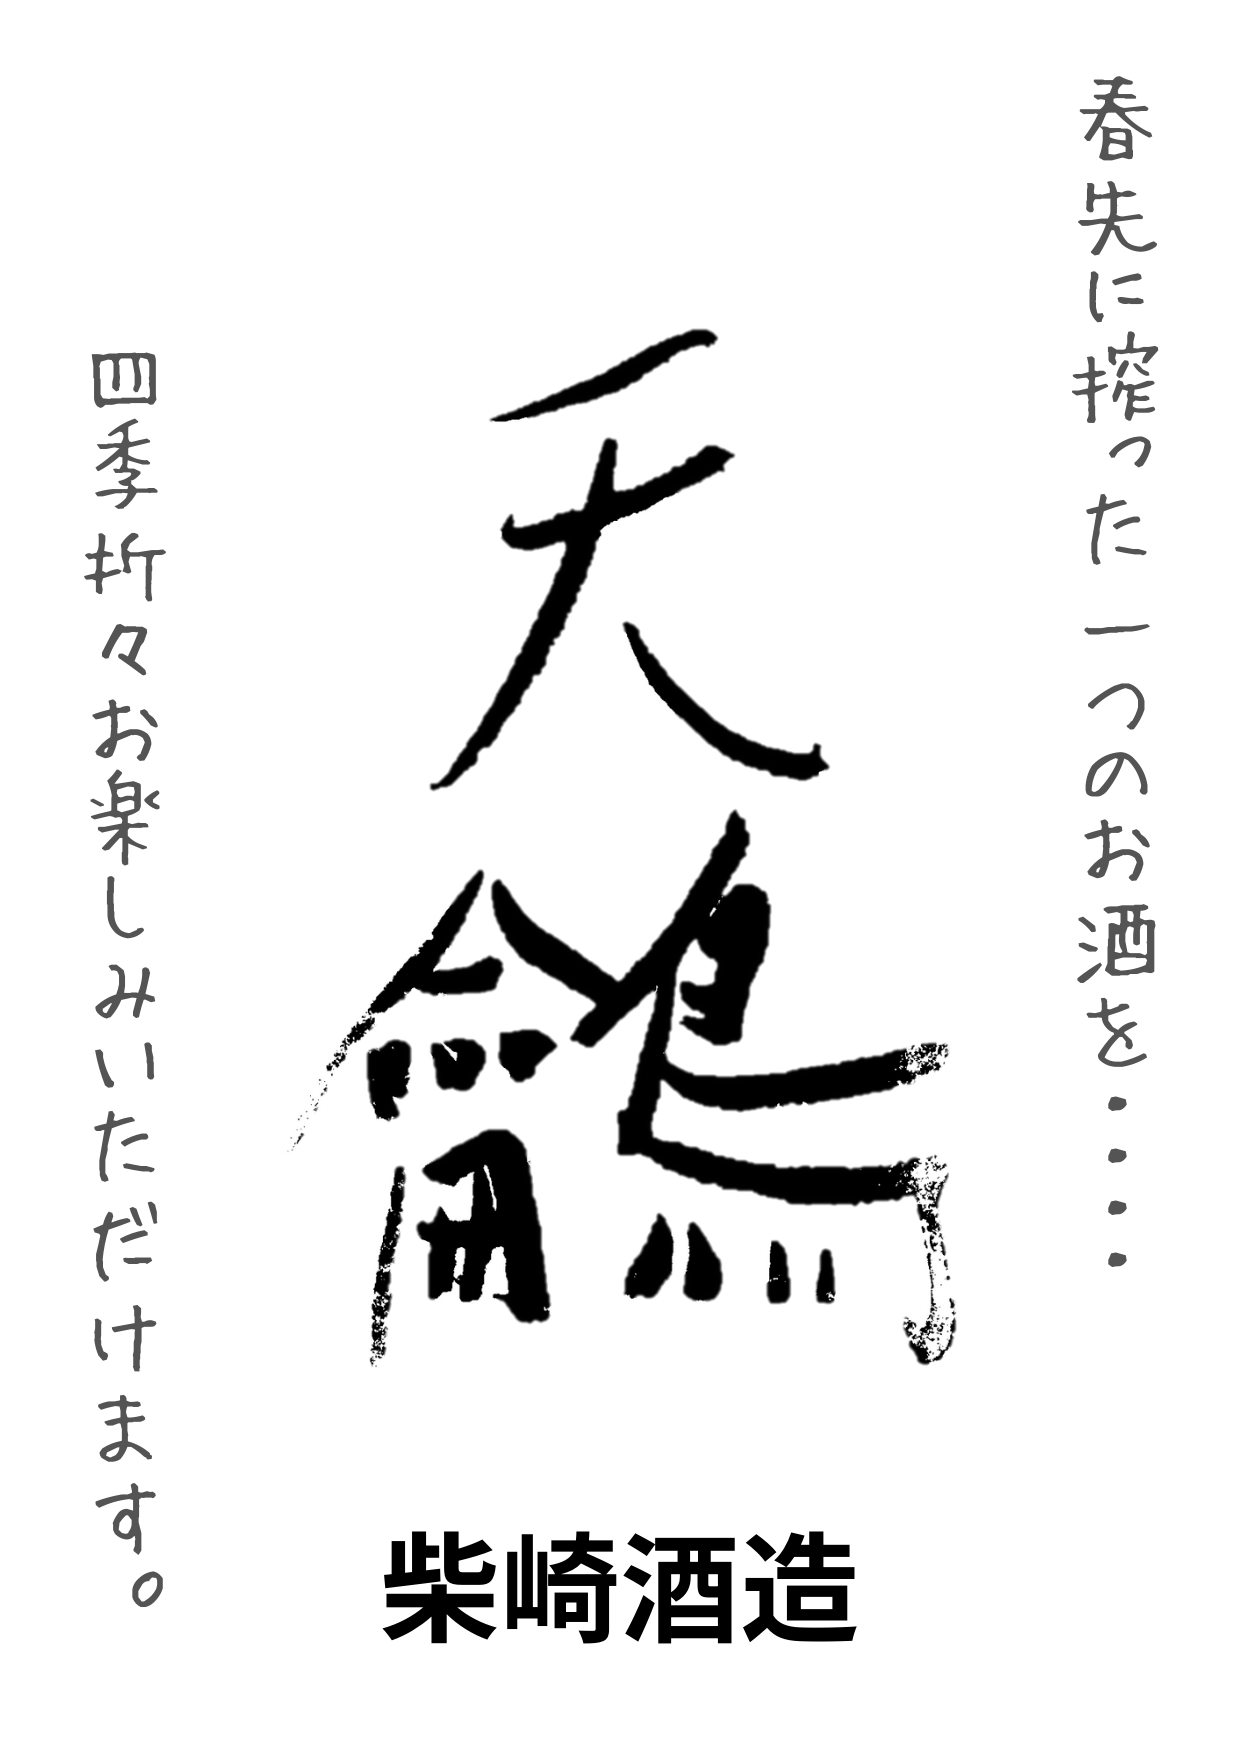 春先に搾った一つのお酒を・・・・
天鸙
四季折々お楽しみいただけます。
柴崎酒造